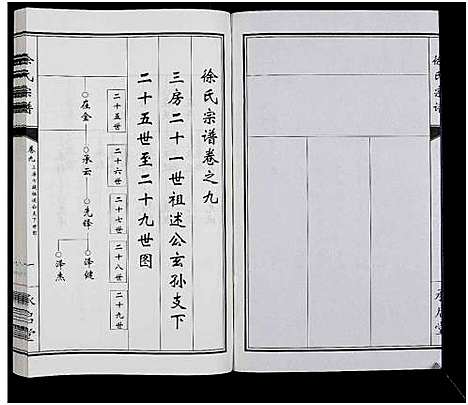 徐氏宗谱
徐氏宗谱卷之九
三房二十一世祖述公玄孙支下
二十五世至二十九世图
二十五世
二十六世
二十七世
二十八世
二十九世
在金
承云
先锋
泽健
泽杰
徐氏宗谱
卷九